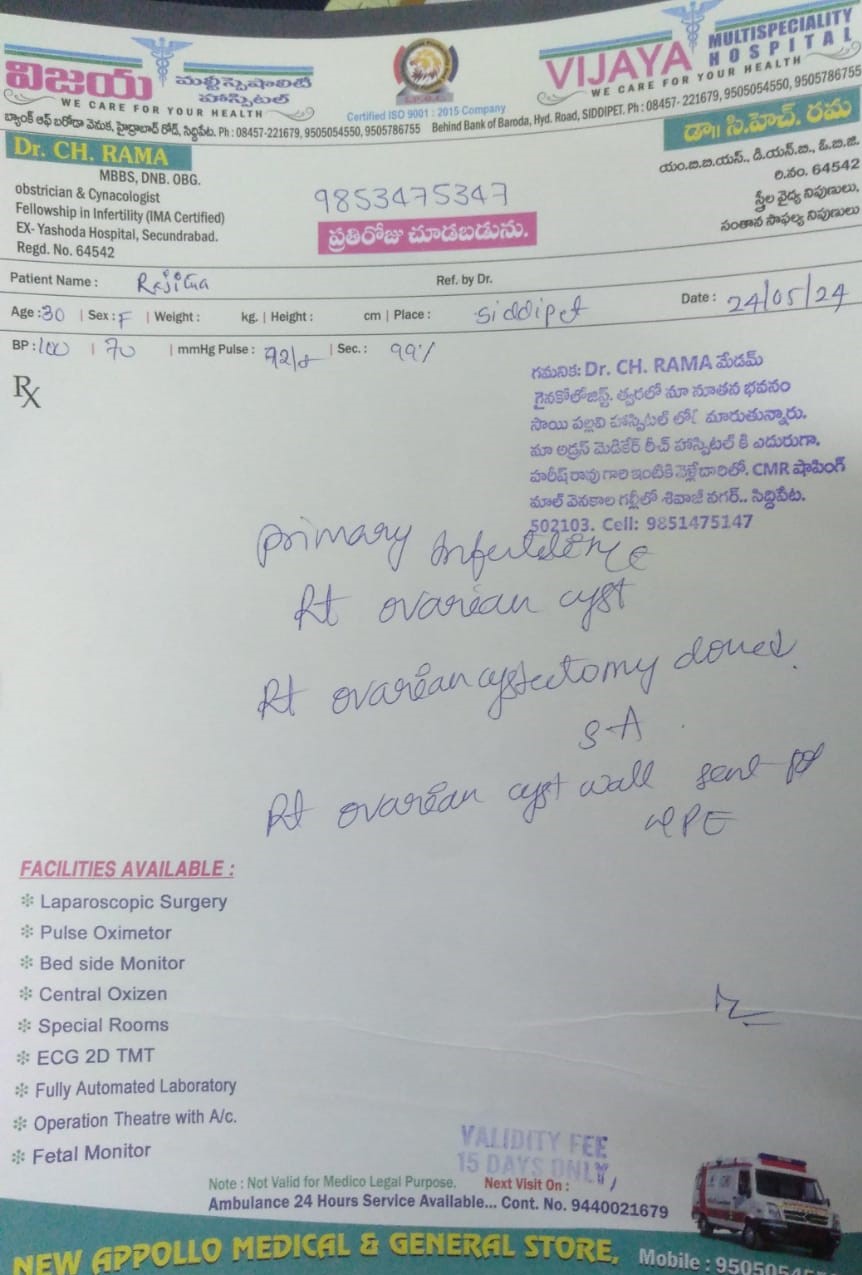 విజయ మల్టీస్పెషాలిటీ హాస్పిటల్
WE CARE FOR YOUR HEALTH
VIJAYA MULTISPECIALITY HOSPITAL
WE CARE FOR YOUR HEALTH
Certified ISO 9001 : 2015 Company
బ్యాంక్ ఆఫ్ బరోడా వెనుక, హైద్రాబాద్ రోడ్, సిద్దిపేట. Ph : 08457-221679, 9505054550, 9505786755
Behind Bank of Baroda, Hyd. Road, SIDDIPET. Ph : 08457- 221679, 9505054550, 9505786755
Dr. CH. RAMA
MBBS, DNB. OBG.
obstrician & Cynacologist
Fellowship in Infertility (IMA Certified)
EX- Yashoda Hospital, Secundrabad.
Regd. No. 64542
9853475347
ప్రతిరోజు చూడబడును.
డా॥ సి.హెచ్. రమ
యం.బి.బి.యస్., డి.యన్.బి., ఓ.బి.జి.
రి.నం. 64542
స్త్రీల వైద్య నిపుణులు,
సంతాన సాఫల్య నిపుణులు
Patient Name : Rajitha Ref. by Dr.
Age : 30 | Sex : F | Weight : kg. | Height : cm | Place : Siddipet Date : 24/05/24
BP : 100 | 70 | mmHg Pulse : | Sec. : 99%
Rx
గమనిక: Dr. CH. RAMA మేడమ్
గైనకోలోజిస్ట్. త్వరలో మా నూతన భవనం
సాయి పల్లవి హాస్పిటల్ లోకి మారుతున్నారు.
మా అడ్రస్ మెడికేర్ రీచ్ హాస్పిటల్ కి ఎదురుగా,
హరీష్ రావు గారి ఇంటికి వెళ్లేదారిలో. CMR షాపింగ్
మాల్ వెనకాల గల్లీలో శివాజీ నగర్.. సిద్దిపేట.
502103. Cell: 9851475147
primary
Rt ovarian cyst
Rt ovarian cystectomy done
SA
Rt ovarian cyst wall sent for
HPE
FACILITIES AVAILABLE :
❇ Laparoscopic Surgery
❇ Pulse Oximetor
❇ Bed side Monitor
❇ Central Oxizen
❇ Special Rooms
❇ ECG 2D TMT
❇ Fully Automated Laboratory
❇ Operation Theatre with A/c.
❇ Fetal Monitor
VALIDITY FEE
15 DAYS ONLY
Note : Not Valid for Medico Legal Purpose. Next Visit On :
Ambulance 24 Hours Service Available... Cont. No. 9440021679
NEW APPOLLO MEDICAL & GENERAL STORE, Mobile :